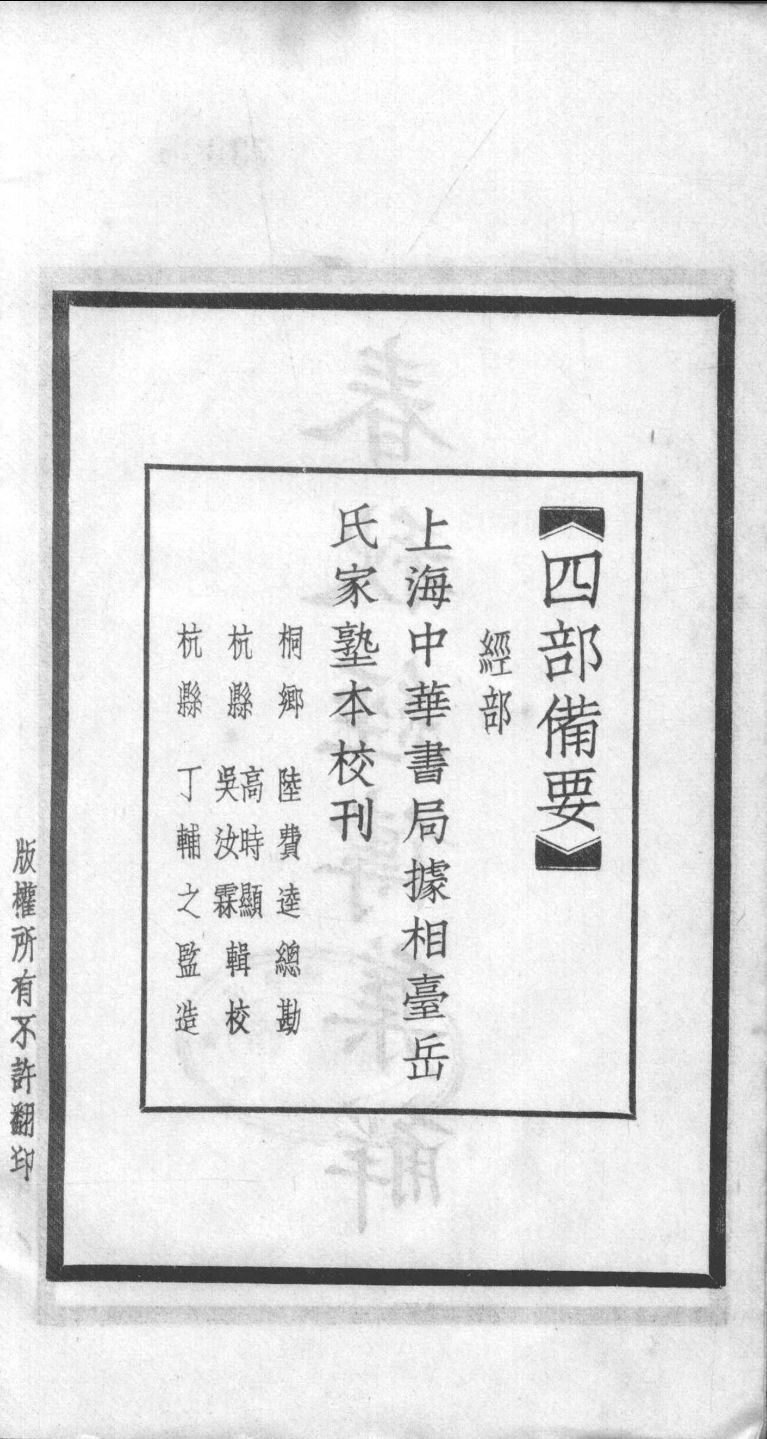 【四部備要】
經部
上海中華書局據相臺岳
氏家塾本校刊
桐鄉 陸費逵總勘
杭縣 高時顯 吳汝霖 輯校
杭縣 丁輔之監造
版權所有不許翻印